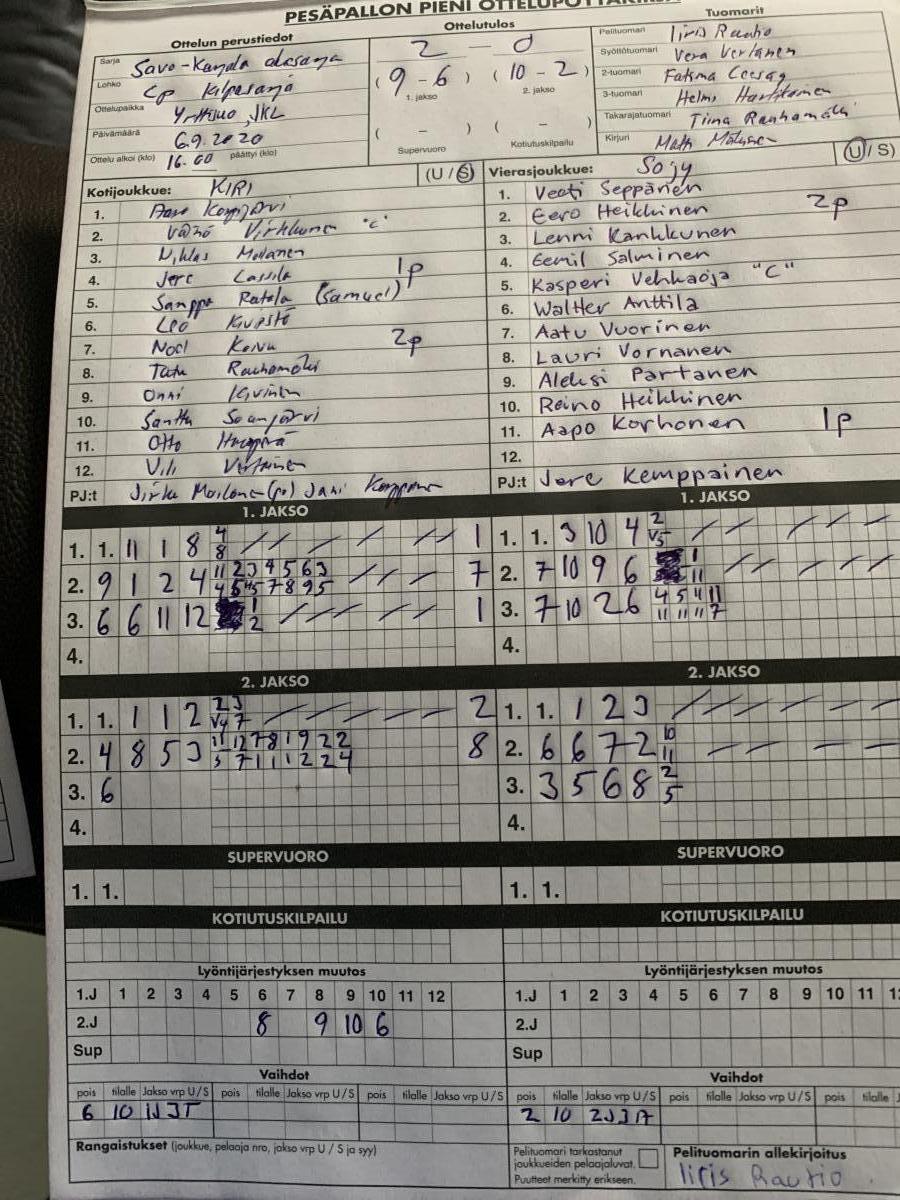 PESÄPALLON PIENI OTTELUPÖYTÄKIRJA
Ottelun perustiedot
Sarja Savo-Karjala aluesarja
Lohko Cp Kilpasarja
Ottelupaikka Yrttisuo, JKL
Päivämäärä 6.9.2020
Ottelu alkoi (klo) 16.00 päättyi (klo)
Ottelutulos
2 - 0
(9 - 6) (10 - 2)
1. jakso 2. jakso
( - ) ( - )
Supervuoro Kotiutuskilpailu
Tuomarit
Pelituomari Iiris Rautio
Syöttötuomari Vera Vertanen
2-tuomari Fatima Ceesay
3-tuomari Helmi
Takarajatuomari Tiina Rauhamäki
Kirjuri Matti
Kotijoukkue: KIRI (U/S)
1. Aaro
2. Väinö Virkkunen "C"
3. Niklas Moilanen
4. Jere Lassila 1p
5. Samppa Ratala (Samuel)
6. Leo
7. Noel Koivu 2p
8. Tatu Rauhamäki
9. Onni
10. Santtu Saarijärvi
11. Otto
12. Vili Virtanen
PJ:t Moilanen (pv) Jani
Vierasjoukkue: SoJy (U/S)
1. Veeti Seppänen
2. Eero Heikkinen 2p
3. Lenni Kankkunen
4. Eemil Salminen
5. Kasperi Vehkaoja "C"
6. Waltter Anttila
7. Aatu Vuorinen
8. Lauri Vornanen
9. Aleksi Partanen
10. Reino Heikkinen
11. Aapo Korhonen 1p
12.
PJ:t Jere Kemppainen
1. JAKSO
1. 1. 11 1 8 4 / 8 1
2. 9 1 2 4 11 2 3 4 5 6 3 7
3. 6 6 11 12 1 / 2 1
4.
1. JAKSO
1. 1. 3 10 4 2 / V5
2. 7 10 9 6 1 / 11
3. 7 10 2 6 4 5 4 11 / 11 11 11 7
4.
2. JAKSO
1. 1. 1 1 2 2 3 / V4 7 2
2. 4 8 5 3 11 12 7 8 1 9 2 2 / 3 7 1 1 1 2 2 4 8
3. 6
4.
2. JAKSO
1. 1. 1 2 3
2. 6 6 7 2 10 / 11
3. 3 5 6 8 2 / 5
4.
SUPERVUORO
1. 1.
SUPERVUORO
1. 1.
KOTIUTUSKILPAILU
KOTIUTUSKILPAILU
Lyöntijärjestyksen muutos
1.J 1 2 3 4 5 6 7 8 9 10 11 12
2.J 8 9 10 6
Sup
Lyöntijärjestyksen muutos
1.J 1 2 3 4 5 6 7 8 9 10 11
2.J
Sup
Vaihdot
pois tilalle Jakso vrp U/S pois tilalle Jakso vrp U/S pois tilalle Jakso vrp U/S
6 10
Vaihdot
pois tilalle Jakso vrp U/S pois tilalle Jakso vrp U/S pois tilalle
2 10 2J3A
Rangaistukset (joukkue, pelaaja nro, jakso vrp U / S ja syy)
Pelituomari tarkastanut
joukkueiden pelaajaluvat.
Puutteet merkitty erikseen.
Pelituomarin allekirjoitus
Iiris Rautio